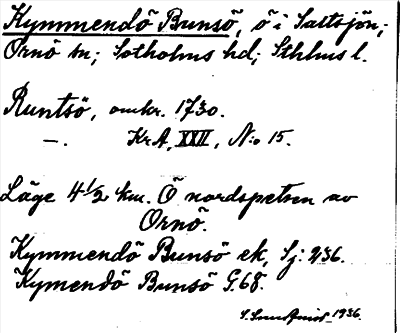 Kymmendö Bunsö, ö i Saltsjön;
Ornö sn; Sotholms hd; Sthlms l.
Runtsö, omkr. 1730.
—. Kr.A, XXII, N:o 15.
Läge 4 1/2 km. Ö nordspetsen av
Ornö.
Kymmendö Bunsö ek, Sj: 236.
Kymendö Bunsö G.68.
1936.